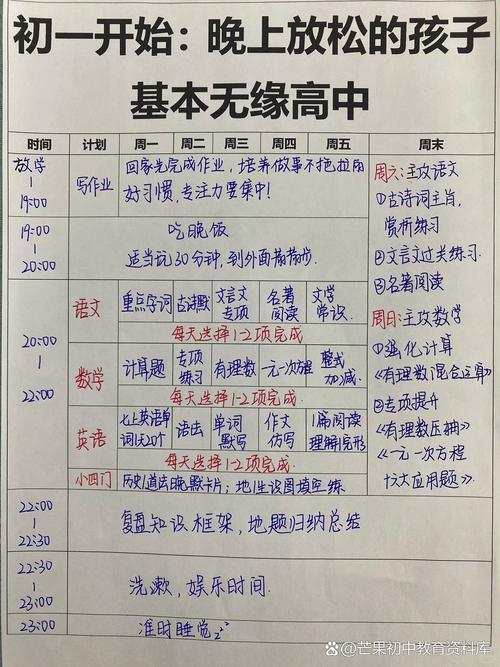 初一开始：晚上放松的孩子
基本无缘高中
时间 计划 周一 周二 周三 周四 周五 周末
放学
19:00
写作业
回家先完成作业，培养做事不拖拉的
好习惯，专注力要集中！
19:00
20:00
吃晚饭
适当玩30分钟，到外面散散步.
20:00
22:00
语文
重点字词 古诗默 文言文专项 名著阅读 文学常识.
每天选择1-2项完成
数学
计算题 专项练习 有理数 一元一次方程 整式加减.
每天选择1-2项完成
英语
七上英语单词1天20个 语法 单词默写 作文仿写 1篇阅读理解完形
每天选择1-2项完成.
小四门
历史道法晚默卡片；地生设图填空练
周六：主攻语文
①古诗词主旨，
赏析练习
②文言文过关练习
③名著阅读
周日：主攻数学
①强化计算
《有理数混合运算》
②专项提升
《有理数压轴》
《一元一次方程
十六大应用题》
22:00
22:30
复盘知识框架，错题归纳总结
22:30
23:00
洗漱，娱乐时间.
23:00
准时睡觉zzz
@芒果初中教育资料库